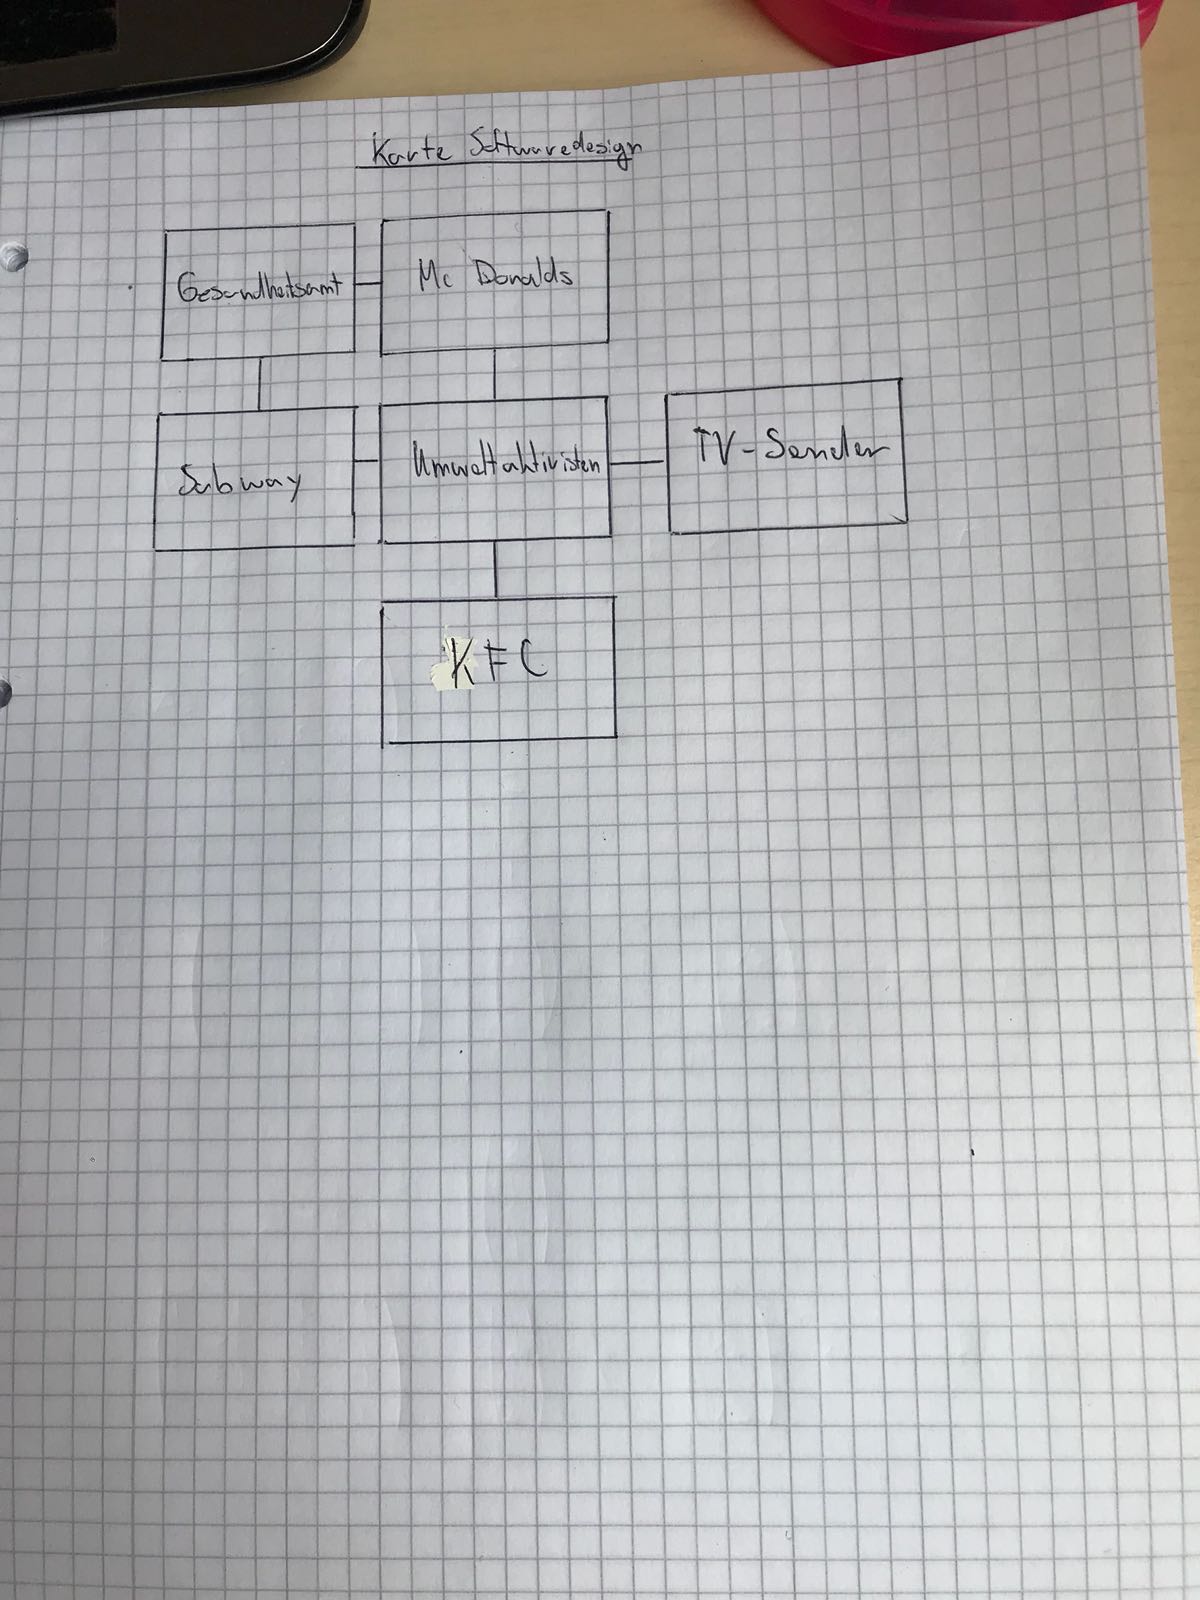 Karte Softwaredesign
Gesundheitsamt
Mc Donalds
Subway
Umweltaktivisten
TV-Sender
KFC